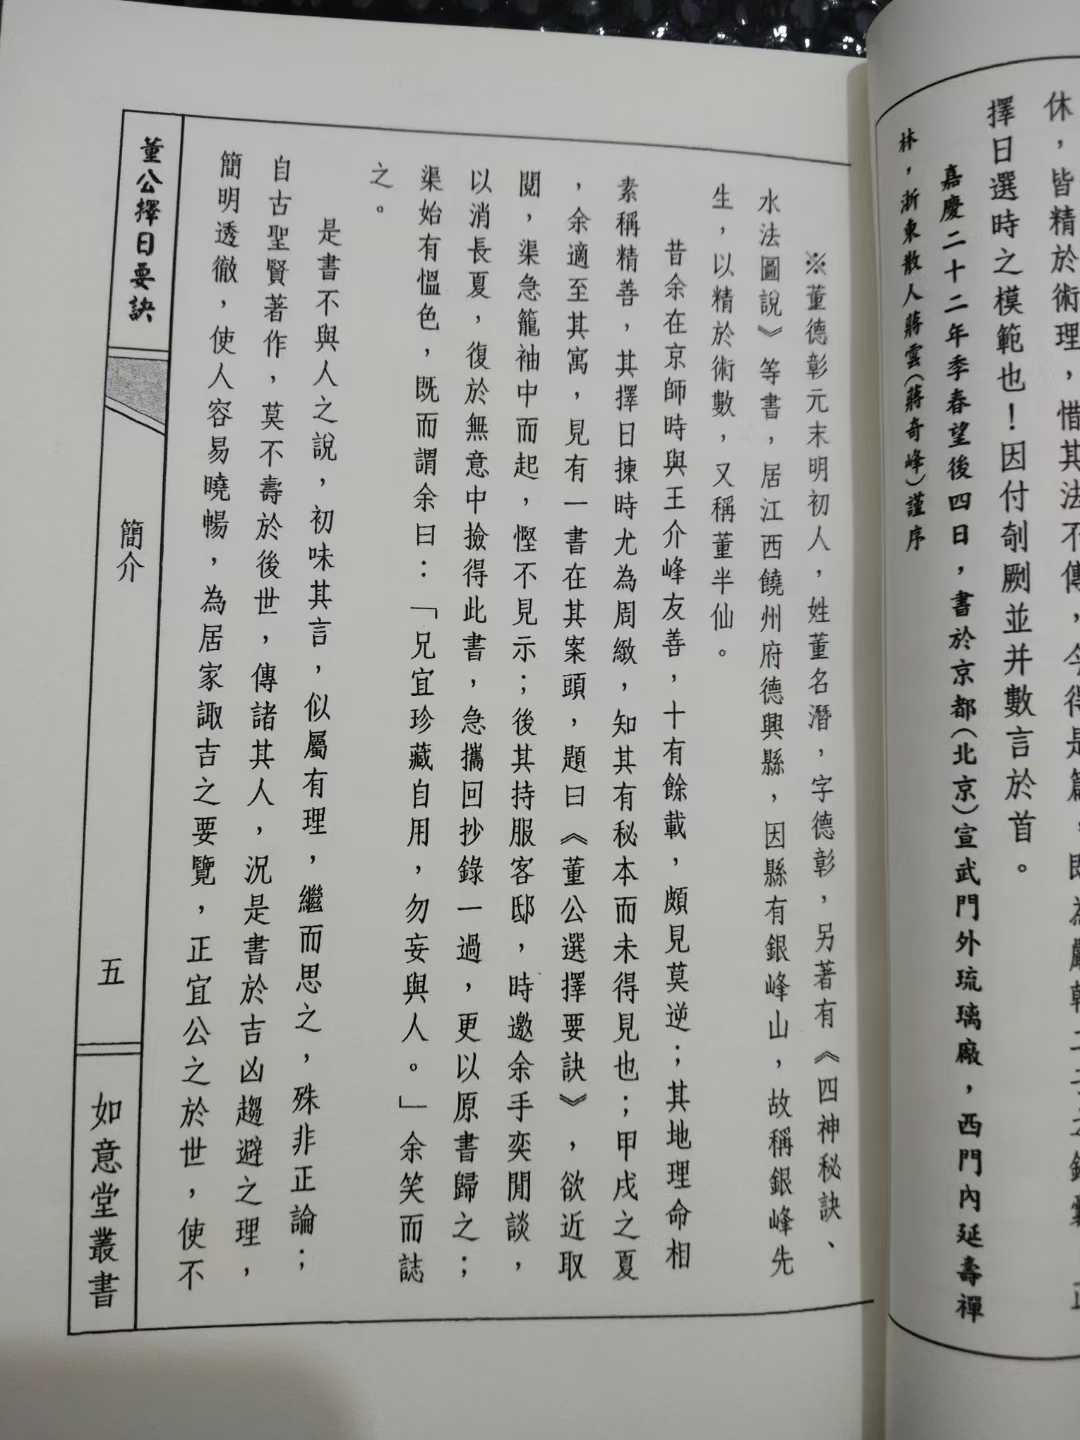 休，皆精於術理，惜其法不傳，今得是篇
擇日選時之模範也！因付剞劂並并數言於首。
嘉慶二十二年季春望後四日，書於京都（北京）宣武門外琉璃廠，西門內延壽禪
林，浙東散人蔣雲（蔣奇峰）謹序
※董德彰元末明初人，姓董名潛，字德彰，另著有《四神秘訣、
水法圖說》等書，居江西饒州府德興縣，因縣有銀峰山，故稱銀峰先
生，以精於術數，又稱董半仙。
昔余在京師時與王介峰友善，十有餘載，頗見莫逆；其地理命相
素稱精善，其擇日揀時尤為周緻，知其有秘本而未得見也；甲戌之夏
，余適至其寓，見有一書在其案頭，題曰《董公選擇要訣》，欲近取
閱，渠急籠袖中而起，慳不見示；後其持服客邸，時邀余手奕閒談，
以消長夏，復於無意中撿得此書，急攜回抄錄一過，更以原書歸之；
渠始有慍色，既而謂余曰：「兄宜珍藏自用，勿妄與人。」余笑而誌
之。
是書不與人之說，初味其言，似屬有理，繼而思之，殊非正論；
自古聖賢著作，莫不壽於後世，傳諸其人，況是書於吉凶趨避之理，
簡明透徹，使人容易曉暢，為居家諏吉之要覽，正宜公之於世，使不
董公擇日要訣
簡介
五
如意堂叢書